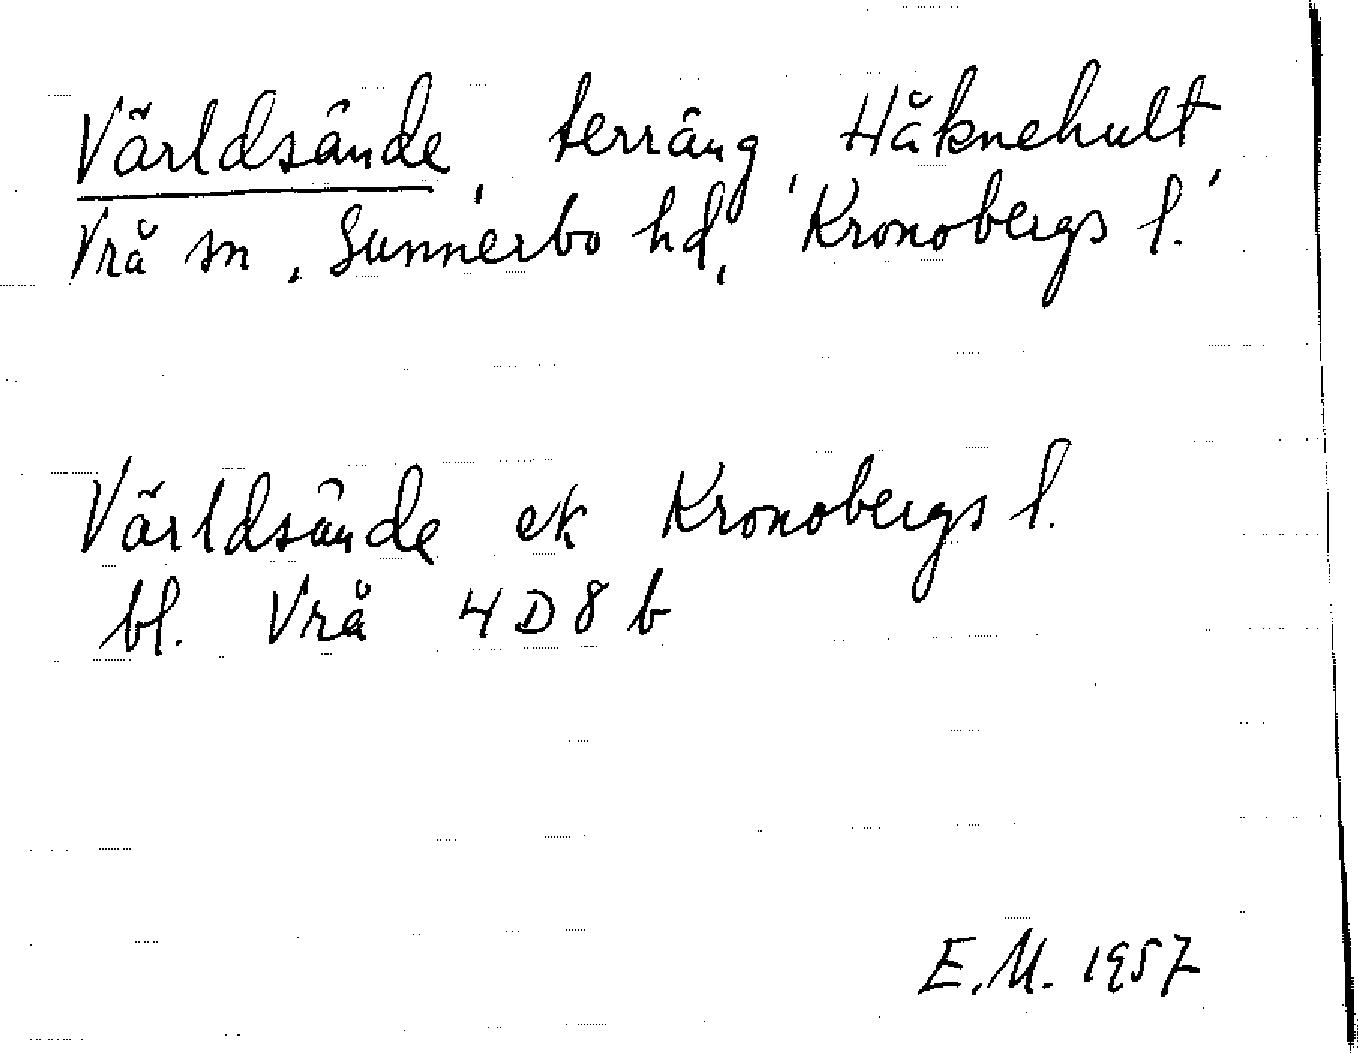 Världsände, terräng, Håknehult,
Vrå sn, Sunnerbo hd, Kronobergs l.
Världsände ek Kronobergs l.
bl. Vrå 4D8b
E.M. 1957